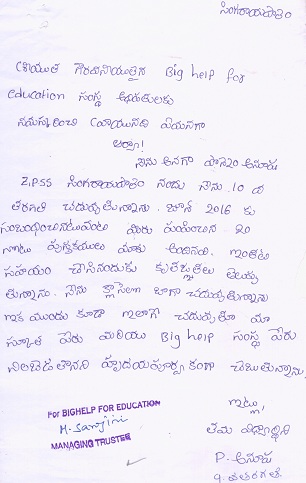 సింగరాయపాలెం
శ్రీయుత గౌరవనీయులైన Big help for
education సంస్థ అధిపతులకు
నమస్కరించి వ్రాయునది ఏమనగా
అయ్యా!
నేను అనగా పొ అనూష
Z.P.S.S సింగరాయపాలెం నందు నేను 10 వ
తరగతి చదువుతున్నాను. జూన్ 2016 కు
సంబంధించినటువంటి మీరు పంపించిన 20
నోట్సు పుస్తకములు మాకు అందినవి. ఇంతటి
సహాయం చేసినందుకు కృతజ్ఞతలు తెలుపు
తున్నాను. నేను క్లాసులో బాగా చదువుతున్నాను
ఇక ముందు కూడా ఇలాగే చదువుతూ మా
స్కూల్ పేరు మరియు Big help సంస్థ పేరు
నిలబెడతానని హృదయపూర్వకంగా చెబుతున్నాను.
ఇట్లు,
తమ విద్యార్థిని
P. అనూష
9. వతరగతి.
For BIGHELP FOR EDUCATION
M. Sarojini
MANAGING TRUSTEE